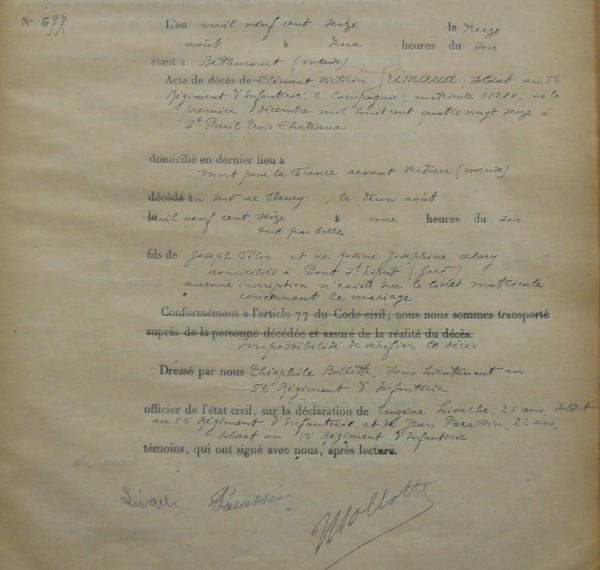 N° 697 L'an mil neuf cent seize le treize
août à deux heures du soir
étant à Bettancourt (meuse)
Acte de décès de Clément, Victorin Grimaud soldat au 56
Régiment d'Infanterie; 6 Compagnie; matricule 11200; né le
premier décembre mil huit cent quatre vingt seize à
St Paul trois Chateaux
domicilié en dernier lieu à
mort pour la France devant Verdun (meuse)
décédé au sud de Fleury, le deux août
le mil neuf cent seize à une heures du soir
tué par balle
fils de Joseph Félix et de Rosine Joséphine Alary
domiciliés à Pont St Esprit (Gard)
aucune inscription n'existe sur le livret matricule
concernant le mariage
Conformément à l'article 77 du Code civil, nous nous sommes transporté
auprès de la personne décédée et assuré de la réalité du décès.
Impossibilité de vérifier le décès
Dressé par nous Théophile Bollotte, sous lieutenant au
56 Régiment d'Infanterie
officier de l'état civil, sur la déclaration de Eugène Livache, 21 ans, soldat
au 56 Régiment d'Infanterie, et de Jean Parassin, 22 ans,
soldat au 56 Régiment d'Infanterie
témoins, qui ont signé avec nous, après lecture.